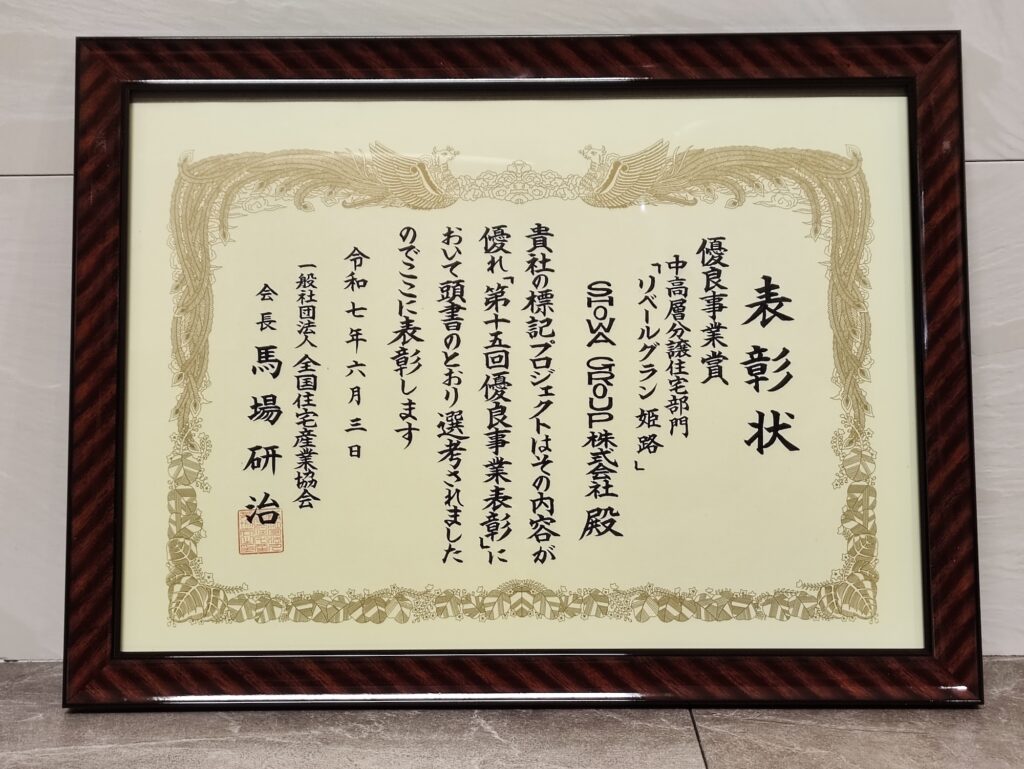 表彰状
優良事業賞
中高層分譲住宅部門
「リベールグラン姫路」
SHOWA GROUP株式会社 殿
貴社の標記プロジェクトはその内容が
優れ「第十五回優良事業表彰」に
おいて頭書のとおり選考されました
のでここに表彰します
令和七年六月三日
一般社団法人 全国住宅産業協会
会長 馬場研治